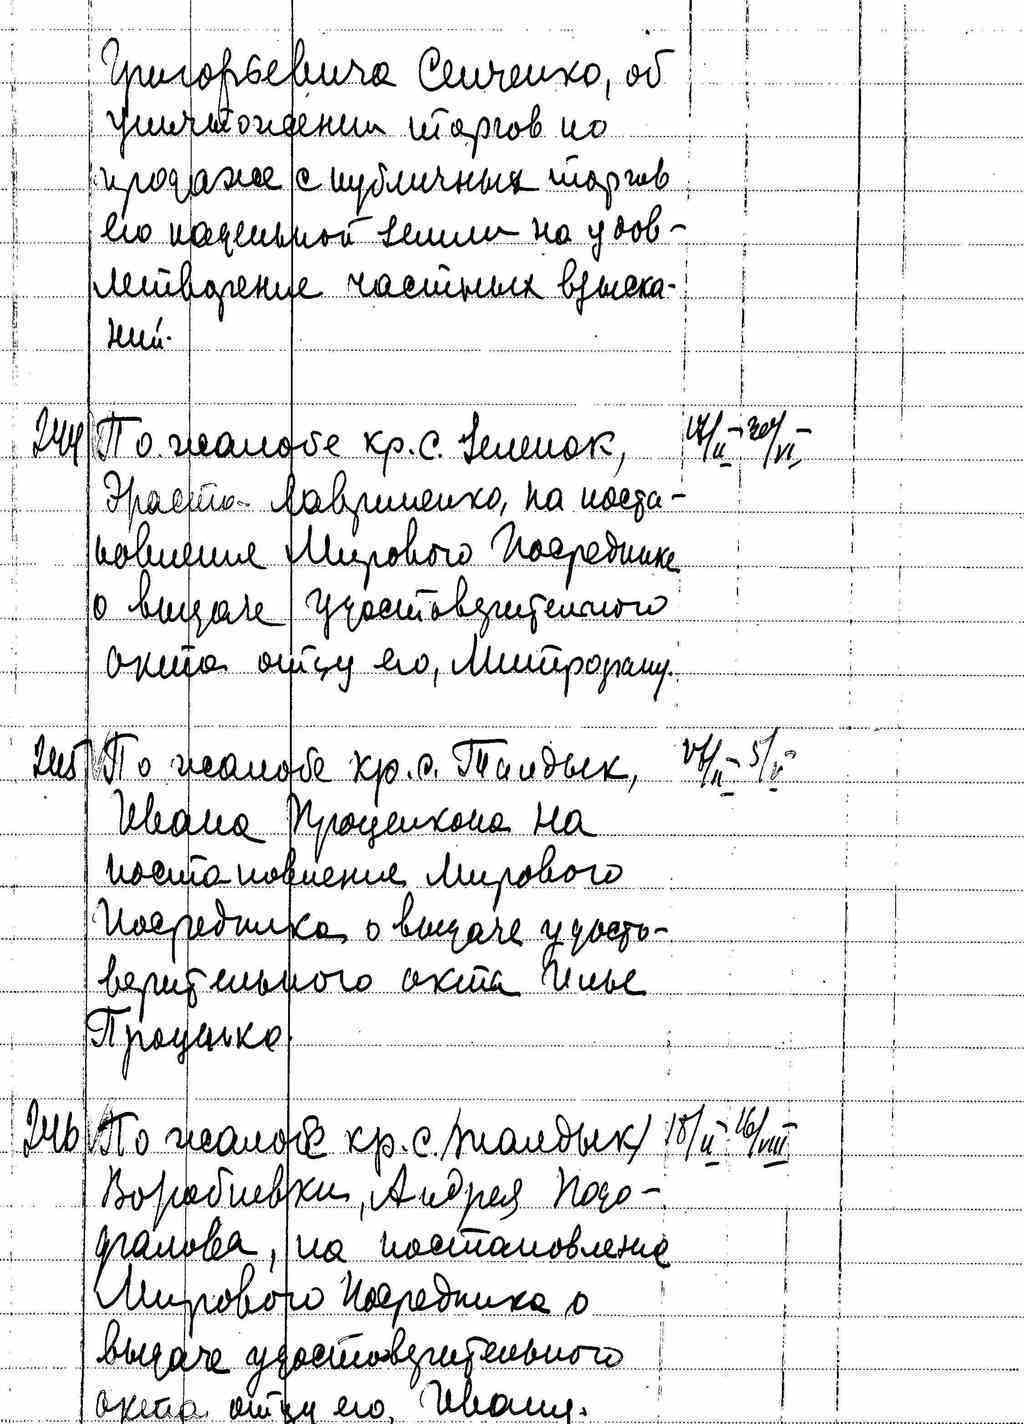 Григорьевича Сенченко, об
уничтожении торгов по
продаже с публичных торгов
его надельной земли на удов-
летворение частных взыска-
ний.
244 По жалобе кр. с. Зеленок, 17/II - 20/VI
Эраста Лавриненко, на поста-
новление Мирового Посредника
о выдаче удостоверительного
акта отцу его, Митрофану.
245 По жалобе кр. с. Талдык, 5/V
Ивана Проценкова на
постановление Мирового
Посредника о выдаче удосто-
верительного акта Илье
Проценко.
246 По жалобе кр. с. /Жалдык/ 18/II 16/VIII
Воробиевки, Андрея
на постановление
Мирового Посредника о
выдаче удостоверительного
акта отцу его, Ивану.